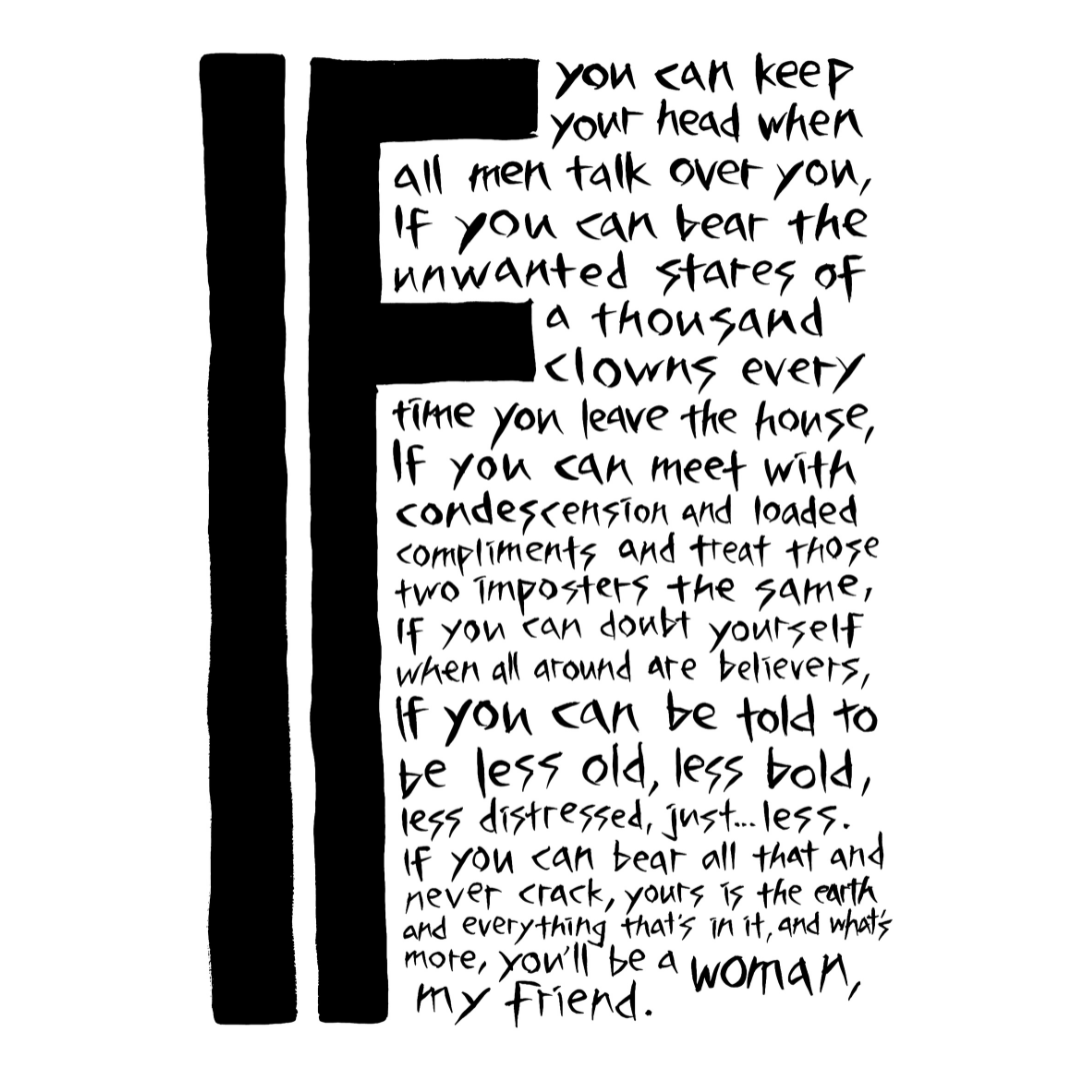 IF you can keep
your head when
all men talk over you,
If you can bear the
unwanted stares of
a thousand
clowns every
time you leave the house,
If you can meet with
condescension and loaded
compliments and treat those
two imposters the same,
If you can doubt yourself
when all around are believers,
If you can be told to
be less old, less bold,
less distressed, just... less.
If you can bear all that and
never crack, yours is the earth
and everything that's in it, and what's
more, you'll be a woman,
my friend.